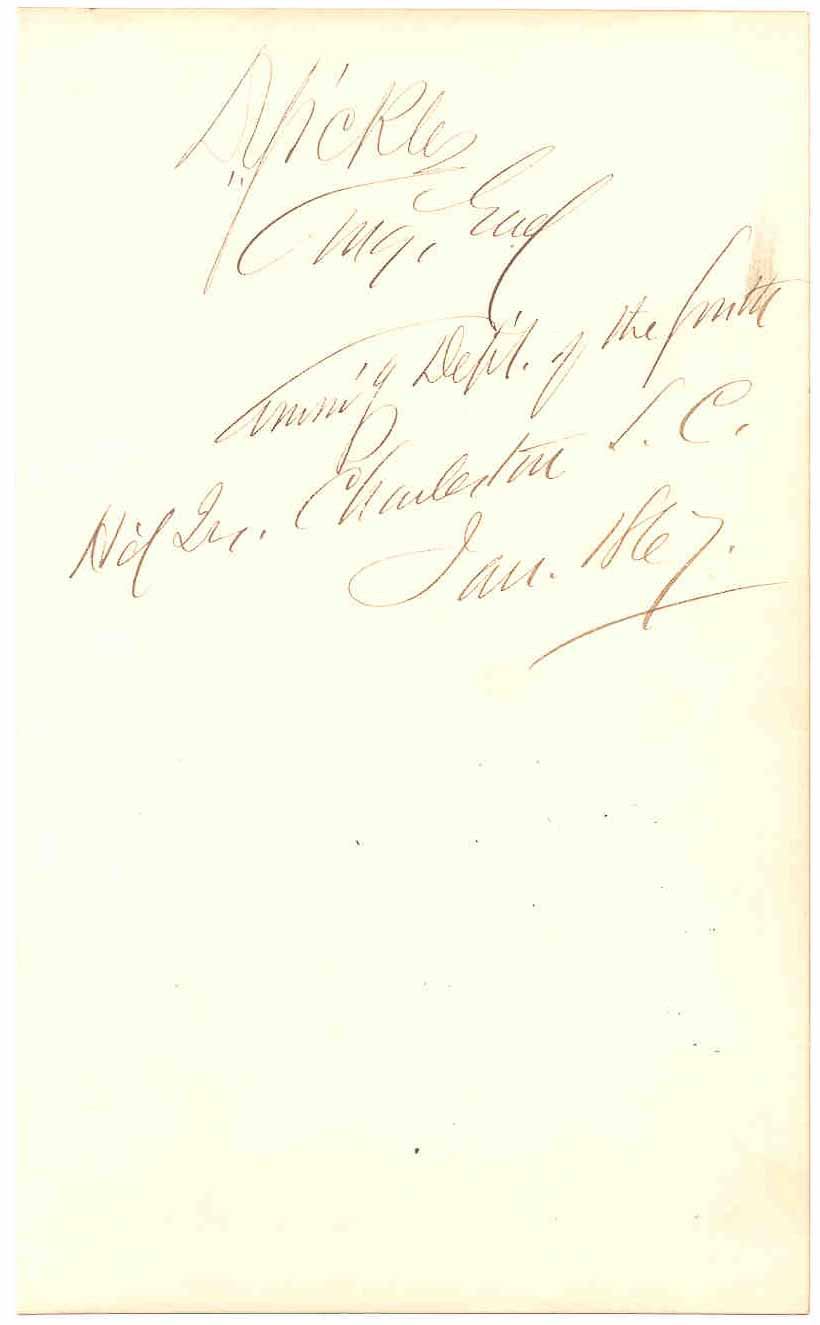 D Sickles
Maj. Genl
Comm'g Dept. of the South
H'd Qrs. Charleston S. C.
Jan. 1867.